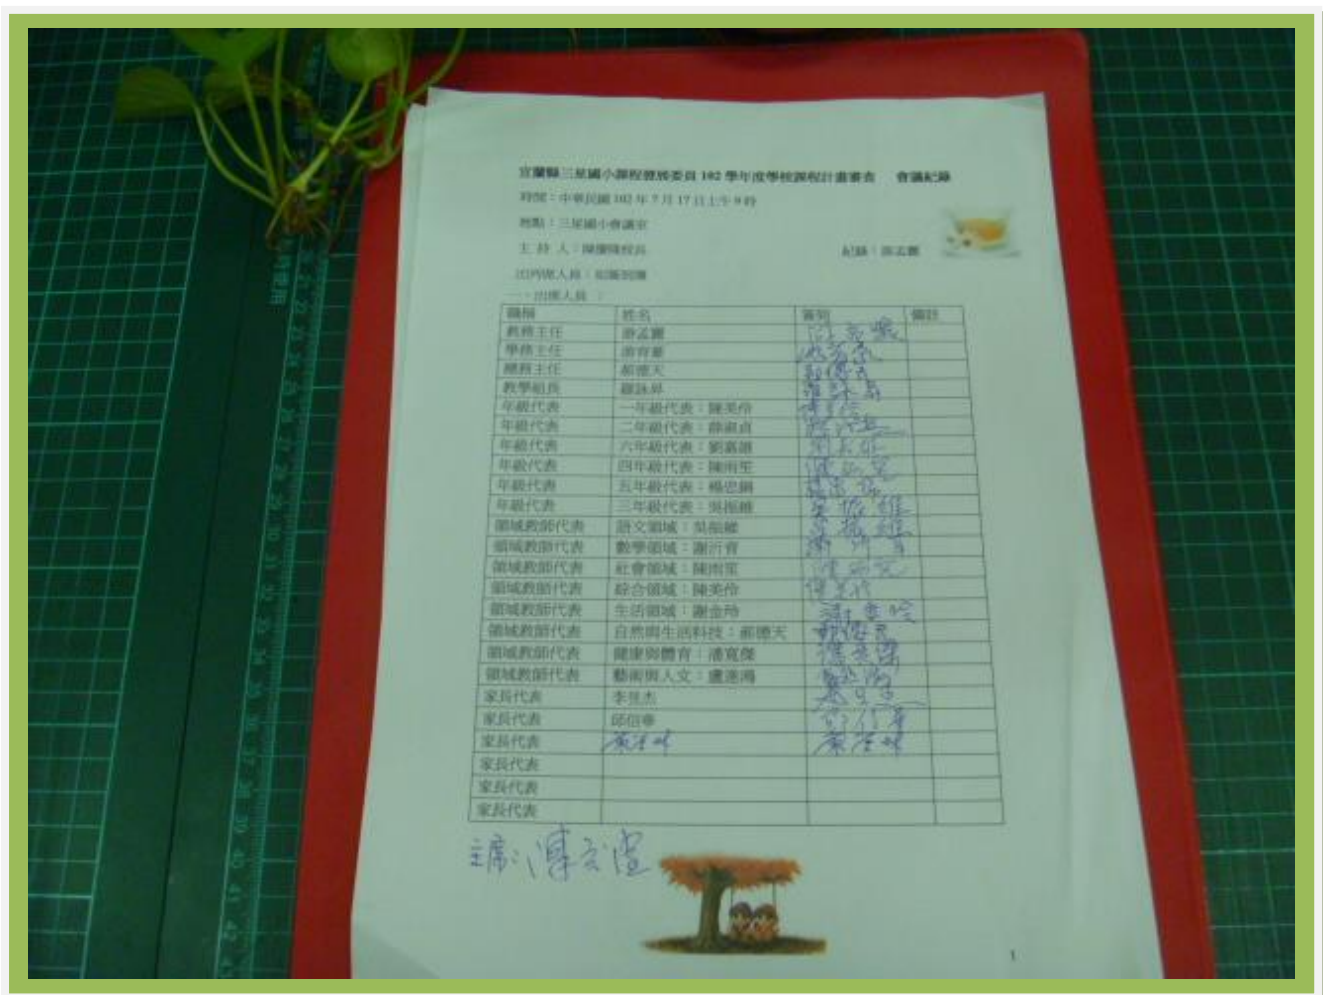 宜蘭縣三星國小課程發展委員 102 學年度學校課程計畫審查 會議紀錄
時間：中華民國 102 年 7 月 17 日上午 9 時
地點：三星國小會議室
主 持 人：
紀錄：游孟麗
出列席人員：如簽到簿
一、出席人員：
職稱 姓名 簽到 備註
教務主任 游孟麗
學務主任
總務主任 郝德天
教學組長 羅詠昇
年級代表 一年級代表：陳美伶
年級代表 二年級代表：薛淑貞
年級代表 六年級代表：劉嘉雄
年級代表 四年級代表：陳雨笙 陳雨笙
年級代表 五年級代表：楊忠錦
年級代表 三年級代表：吳振維 吳振維
領域教師代表 語文領域：吳振維 吳振維
領域教師代表 數學領域：謝沂育
領域教師代表 社會領域：陳雨笙 陳雨笙
領域教師代表 綜合領域：陳美伶
領域教師代表 生活領域：謝金玲
領域教師代表 自然與生活科技：郝德天
領域教師代表 健康與體育：潘寬傑
領域教師代表 藝術與人文：盧進鴻
家長代表 李昱杰
家長代表 邱信華 邱信華
家長代表
家長代表
家長代表
家長代表
主席：陳
1